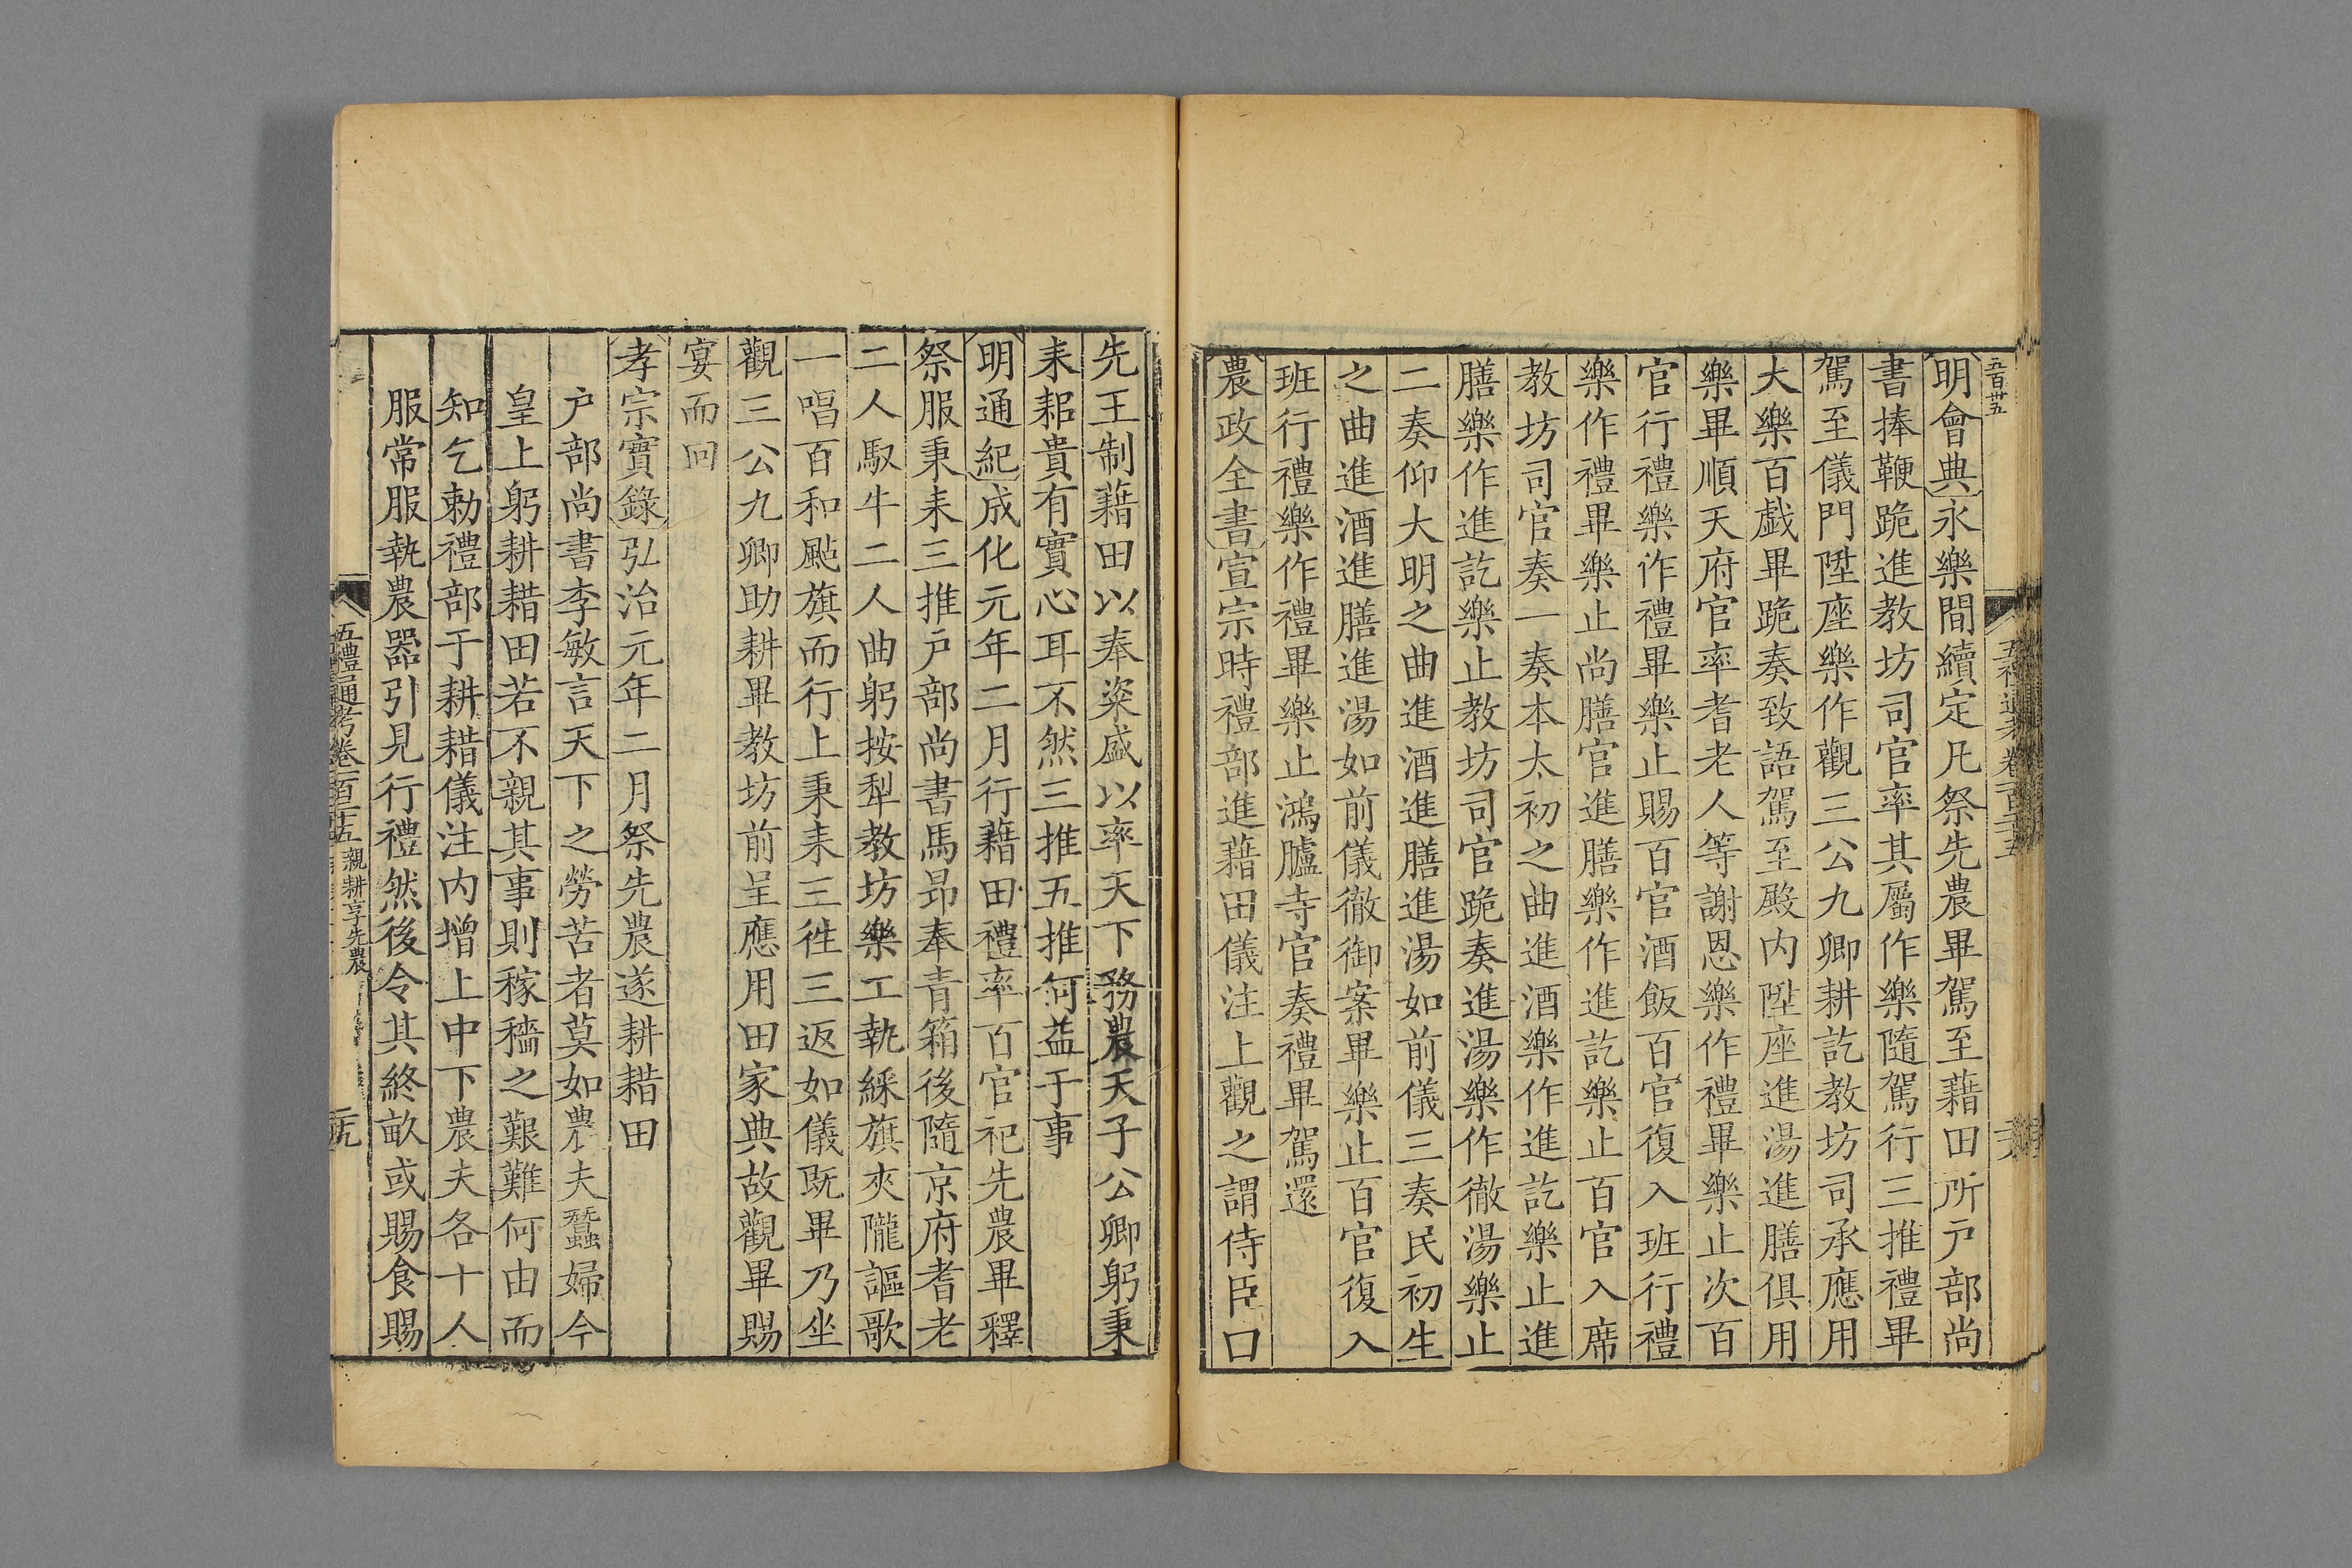 五百卅五
明會典永樂間續定凡祭先農畢駕至藉田所户部尚
書捧鞭跪進教坊司官率其屬作樂隨駕行三推禮畢
駕至儀門陞座樂作觀三公九卿耕訖教坊司承應用
大樂百戲畢跪奏致語駕至殿内陞座進湯進膳俱用
樂畢順天府官率耆老人等謝恩樂作禮畢樂止次百
官行禮樂作禮畢樂止賜百官酒飯百官復入班行禮
樂作禮畢樂止尚膳官進膳樂作進訖樂止百官入席
教坊司官奏一奏本太初之曲進酒樂作進訖樂止進
膳樂作進訖樂止教坊司官跪奏進湯樂作徹湯樂止
二奏仰大明之曲進酒進膳進湯如前儀三奏民初生
之曲進酒進膳進湯如前儀徹御案畢樂止百官復入
班行禮樂作禮畢樂止鴻臚寺官奏禮畢駕還
農政全書宣宗時禮部進藉田儀注上觀之謂侍臣曰
先王制藉田以奉粢盛以率天下務農天子公卿躬秉
耒耜貴有實心耳不然三推五推何益于事
明通紀成化元年二月行藉田禮率百官祀先農畢釋
祭服秉耒三推户部尚書馬昂奉青箱後隨京府耆老
二人馭牛二人曲躬按犁教坊樂工執綵旗夾隴謳歌
一唱百和颭旗而行上秉耒三徃三返如儀既畢乃坐
觀三公九卿助耕畢教坊前呈應用田家典故觀畢賜
宴而回
孝宗實錄弘治元年二月祭先農遂耕耤田
户部尚書李敏言天下之勞苦者莫如農夫蠶婦今
皇上躬耕耤田若不親其事則稼穡之艱難何由而
知乞勅禮部于耕耤儀注内增上中下農夫各十人
服常服執農器引見行禮然後令其終畝或賜食賜
五禮通考卷一百二十五 親耕享先農